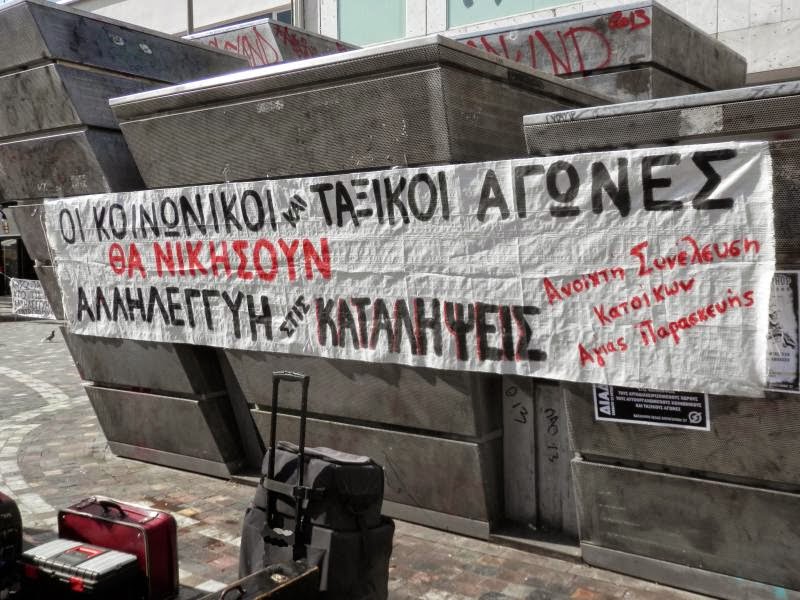 2013
ΟΙ ΚΟΙΝΩΝΙΚΟΙ ΚΑΙ ΤΑΞΙΚΟΙ ΑΓΩΝΕΣ
ΘΑ ΝΙΚΗΣΟΥΝ
ΑΛΛΗΛΕΓΓΥΗ ΣΤΙΣ ΚΑΤΑΛΗΨΕΙΣ
Ανοιχτη Συνέλευση
Κατοίκων
Αγιας Παρασκευής
ΚΑΙ ΤΑΞΙΚΟΥΣ ΑΓΩΝΕΣ